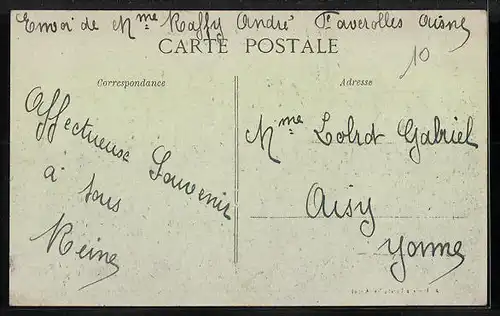 Envoi de Mme Raffy André Faverolles Aisne
CARTE POSTALE
10
Correspondance
Affectueux Souvenir
à tous
Reine
Adresse
Mme Gabriel
Aisy
Yonne